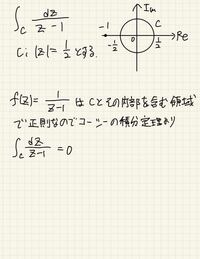 ∫_C dz/(z-1)
C: |z| = 1/2 とする.
Im
C
-1
-1/2
0
1/2
Re
f(z) = 1/(z-1) は Cとその内部を含む領域
で正則なのでコーシーの積分定理より
∫_C dz/(z-1) = 0